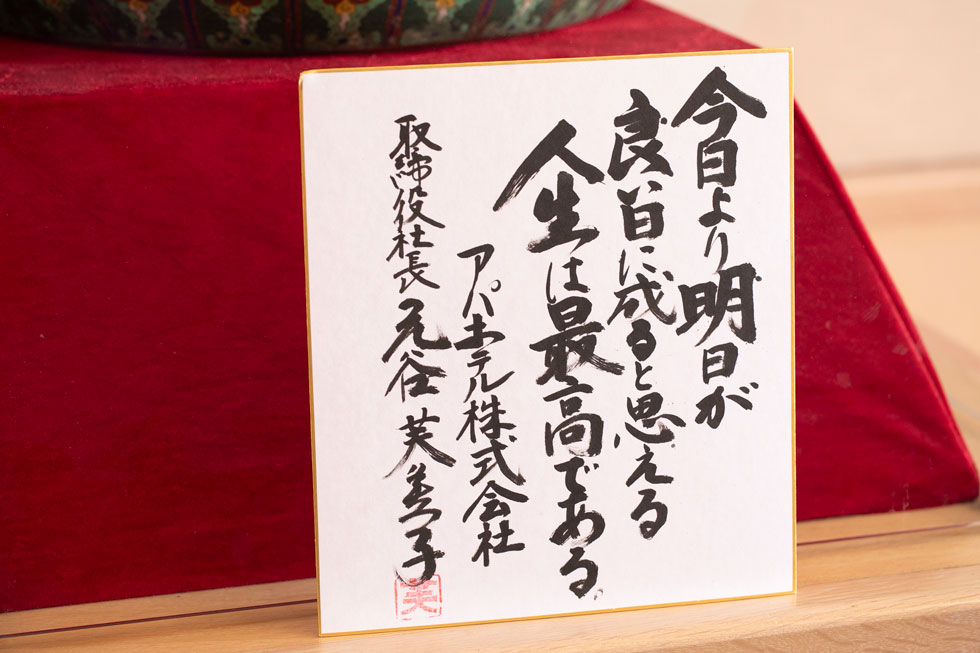 今日より明日が
良い日に成ると思える
人生は最高である。
アパホテル株式会社
取締役社長 元谷 芙美子
芙